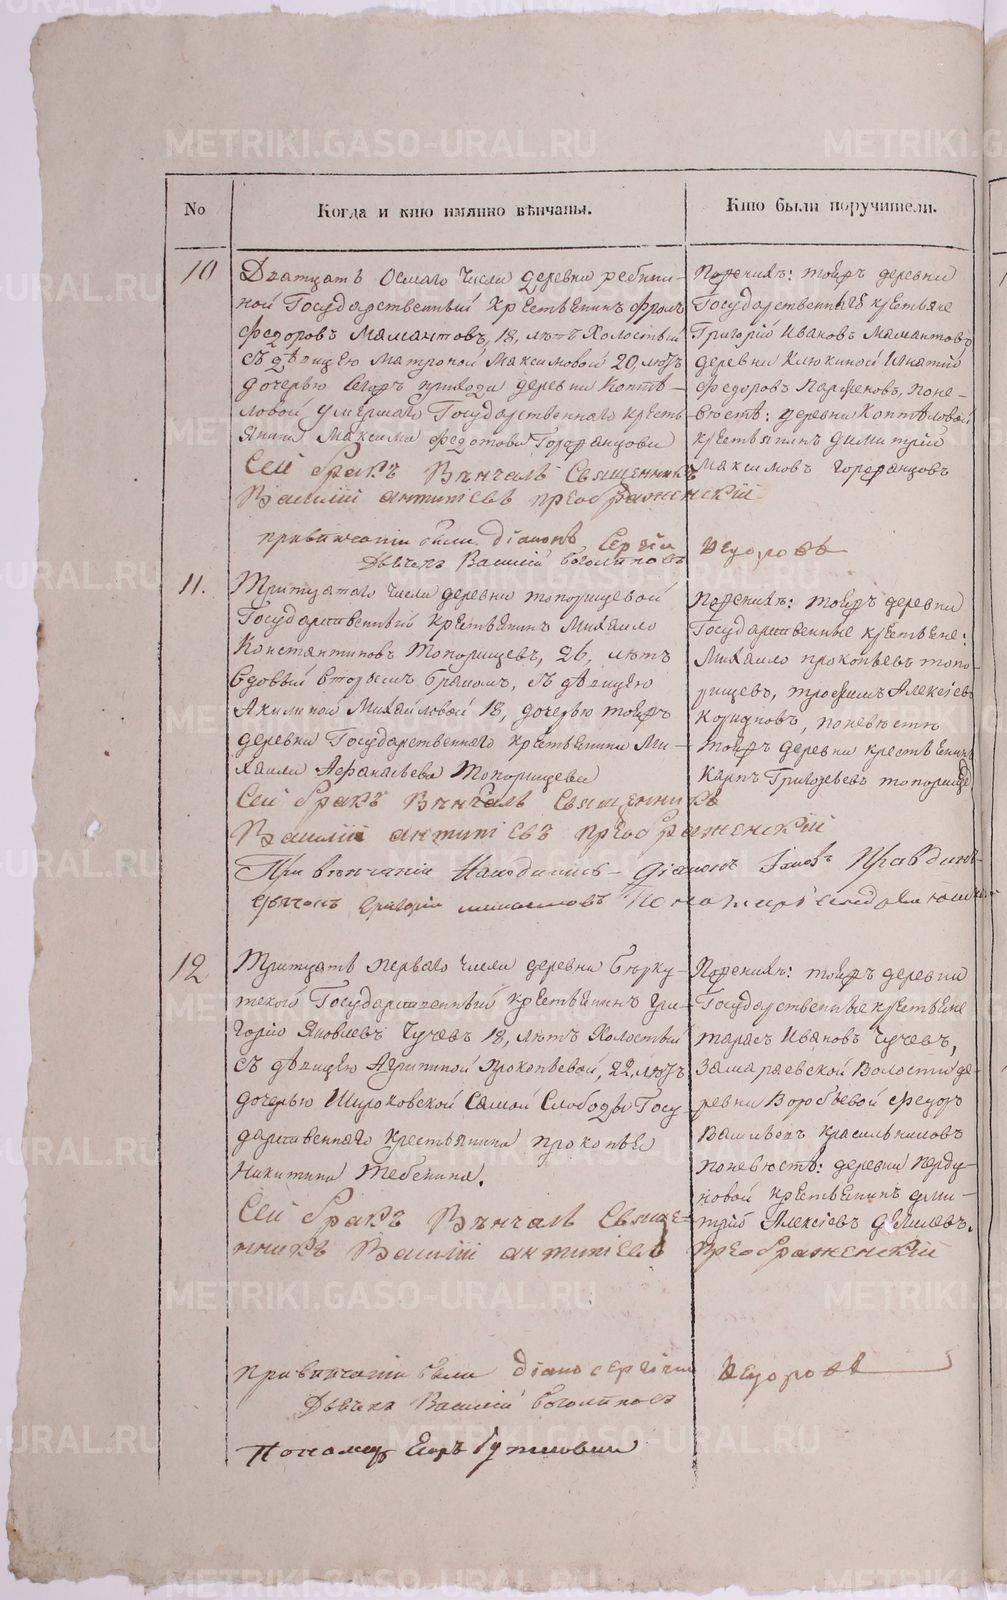 No
Когда и кто имянно вѣнчаны.
Кто были поручители.
10
Дватцать Осмаго Числа деревни
ной Государственный Крестьянинъ Фролъ
Федоровъ Мамантовъ, 18, лѣтъ Холостый
съ дѣвицею Матроной Максимовой 20, лѣтъ
дочерью Сегожъ прихода деревни Коптѣ-
ловой умершаго Государственнаго кресть
янина Максима Федотова Горфанцова
Сей бракъ Вѣнчалъ Священникъ
Василій антипіевъ преображенскій
при вѣнчаніи были діаконъ Сергіи Федоровъ
Дьячекъ Василій боголиповъ
Поженихѣ: тойжъ деревни
Государственныя крестьяне
Григорій Ивановъ Мамантовъ
деревни Клюкиной Игнатій
Федоровъ Парфеновъ, поне-
вѣстѣ: деревни Коптѣловой
крестьянинъ димитрій
Максимовъ Горфанцовъ
11.
Тритцатаго числа деревни топорищевой
Государственный крестьянинъ Михайло
Константиновъ Топорищевъ, 26, лѣтъ
вдовый вторымъ бракомъ, съ дѣвицею
Акилиной Михайловой 18, дочерью тойжъ
деревни Государственнаго крестьянина Ми-
хаила Афанасьева Топорищева
Сей бракъ Вѣнчалъ Священникъ
Василій антипіевъ преображенскій
При вѣнчаніи Находились Діаконъ Іаковъ
дьячекъ Григорій
Поженихѣ: тойжъ деревни
Государственные крестьяне:
Михайло прокопьевъ топо-
рищевъ, трофимъ Алексіевъ
поневѣстѣ
тойжъ деревни крестьянинъ
Карпъ Григорьевъ топорищев
12
Тритцать перваго числа деревни Бѣрку-
тской Государственный крестьянинъ Гри-
горій Яковлевъ Чучевъ 18, лѣтъ Холостый
съ дѣвицею Агрипиной Прокопьевой, 22, лѣтъ
дочерью Широковской Самой Слободы Госу
дарственнаго крестьянина прокопья
Никитина Тебенина.
Сей бракъ Вѣнчалъ Священ-
никъ Василій антипіевъ преображенскій
Поженихѣ: тойжъ деревни
Государственные крестьяне
тарасъ Ивановъ Чучевъ,
Замараевской Волости де-
ревни Воробьевой федоръ
Васильевъ Красильниковъ
поневѣстѣ: деревни Перду-
новой крестьянинъ дими-
трій Алексіевъ
при вѣнчаніи были діако сергіи Федоровъ
Дьячекъ Василій боголиповъ
Пономарь Егоръ